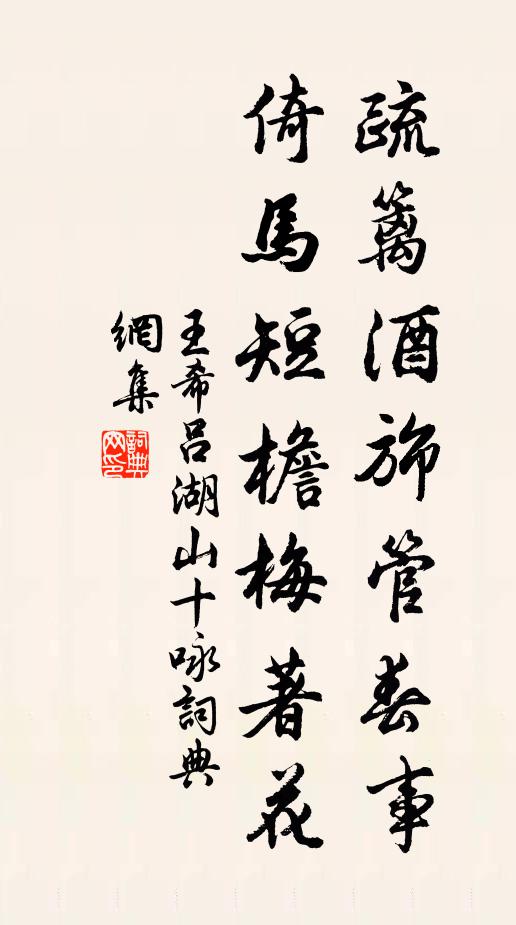 疏篱酒旆管春事
倚馬短檐梅著花
王希吕湖山十咏詞典
網集
詞典网印